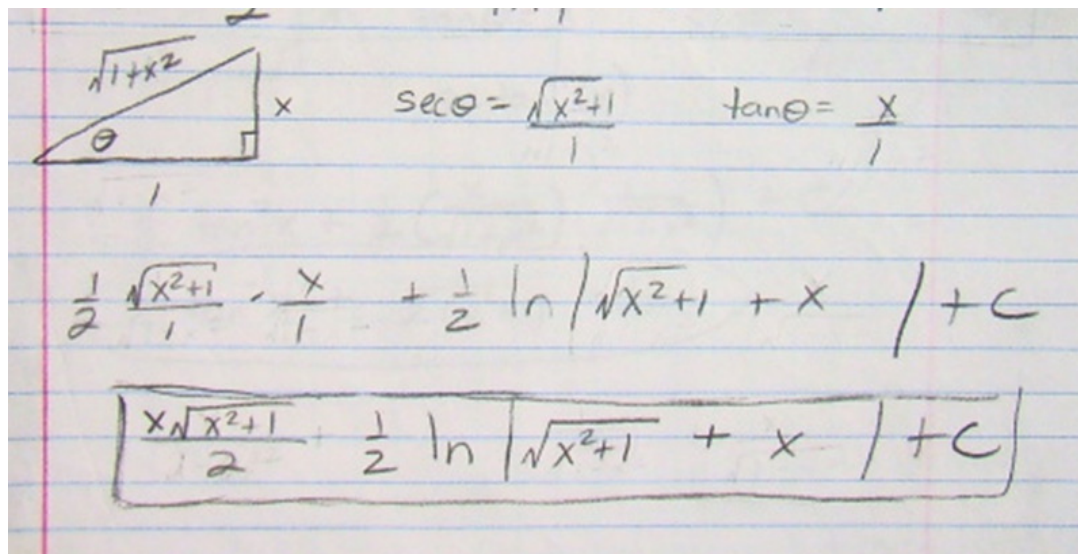 √1+x²
x
θ
1
secθ = √x²+1/1 tanθ = x/1
1/2 √x²+1/1 · x/1 + 1/2 ln|√x²+1 + x | + C
x√x²+1/2 1/2 ln|√x²+1 + x | + C